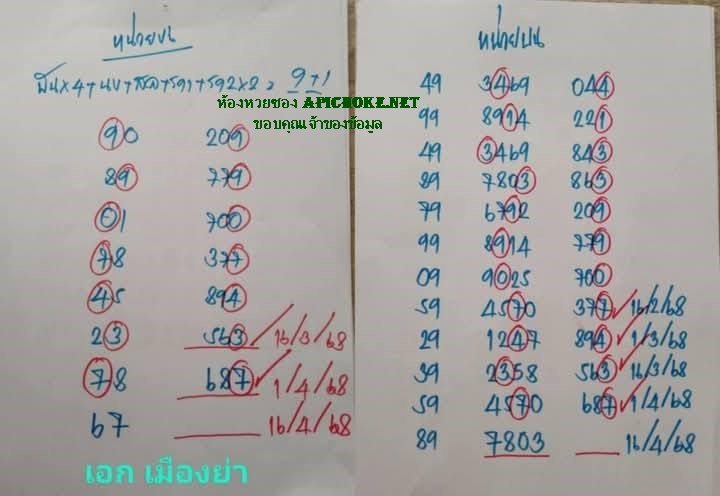 หน่วยบน
พัน×4+บน+... +รอง1+รอง2×2 = 9+1
ห้องหวยซอง APICHOKE.NET
ขอบคุณเจ้าของข้อมูล
90 209
89 779
01 700
78 377
45 894
23 563 16/3/68
78 687 1/4/68
67 16/4/68
เอก เมืองย่า
หน่วยบน
49 3469 044
99 8914 221
49 3469 843
89 7803 865
79 6792 209
99 8914 779
09 9025 700
59 4570 377 16/2/68
29 1247 894 1/3/68
39 2358 563 16/3/68
59 4570 687 1/4/68
89 7803 16/4/68